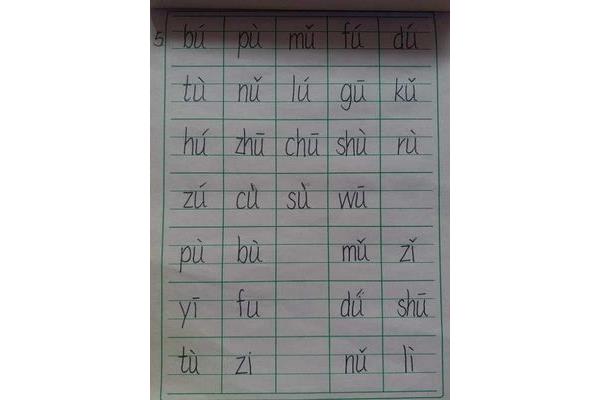 5 bú pù mǔ fú dú
tù nǔ lú gū kǔ
hú zhū chū shù rù
zú cù sù wū
pù bù mǔ zǐ
yī fu dú shū
tù zi nǔ lì